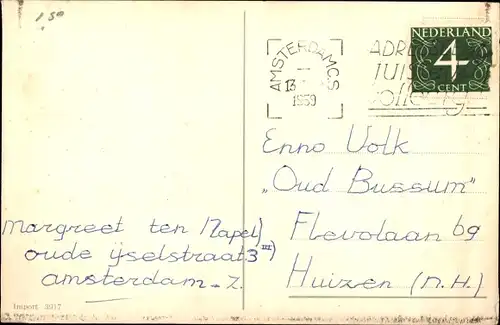 1 50
AMSTERDAM C.S
13
1959
NEDERLAND
4
CENT
Enno Volk
„Oud Bussum"
Flevolaan 69
Huizen (N.H.)
Margreet ten Napel)
oude ijselstraat 3 III)
amsterdam - Z.
Import 3917